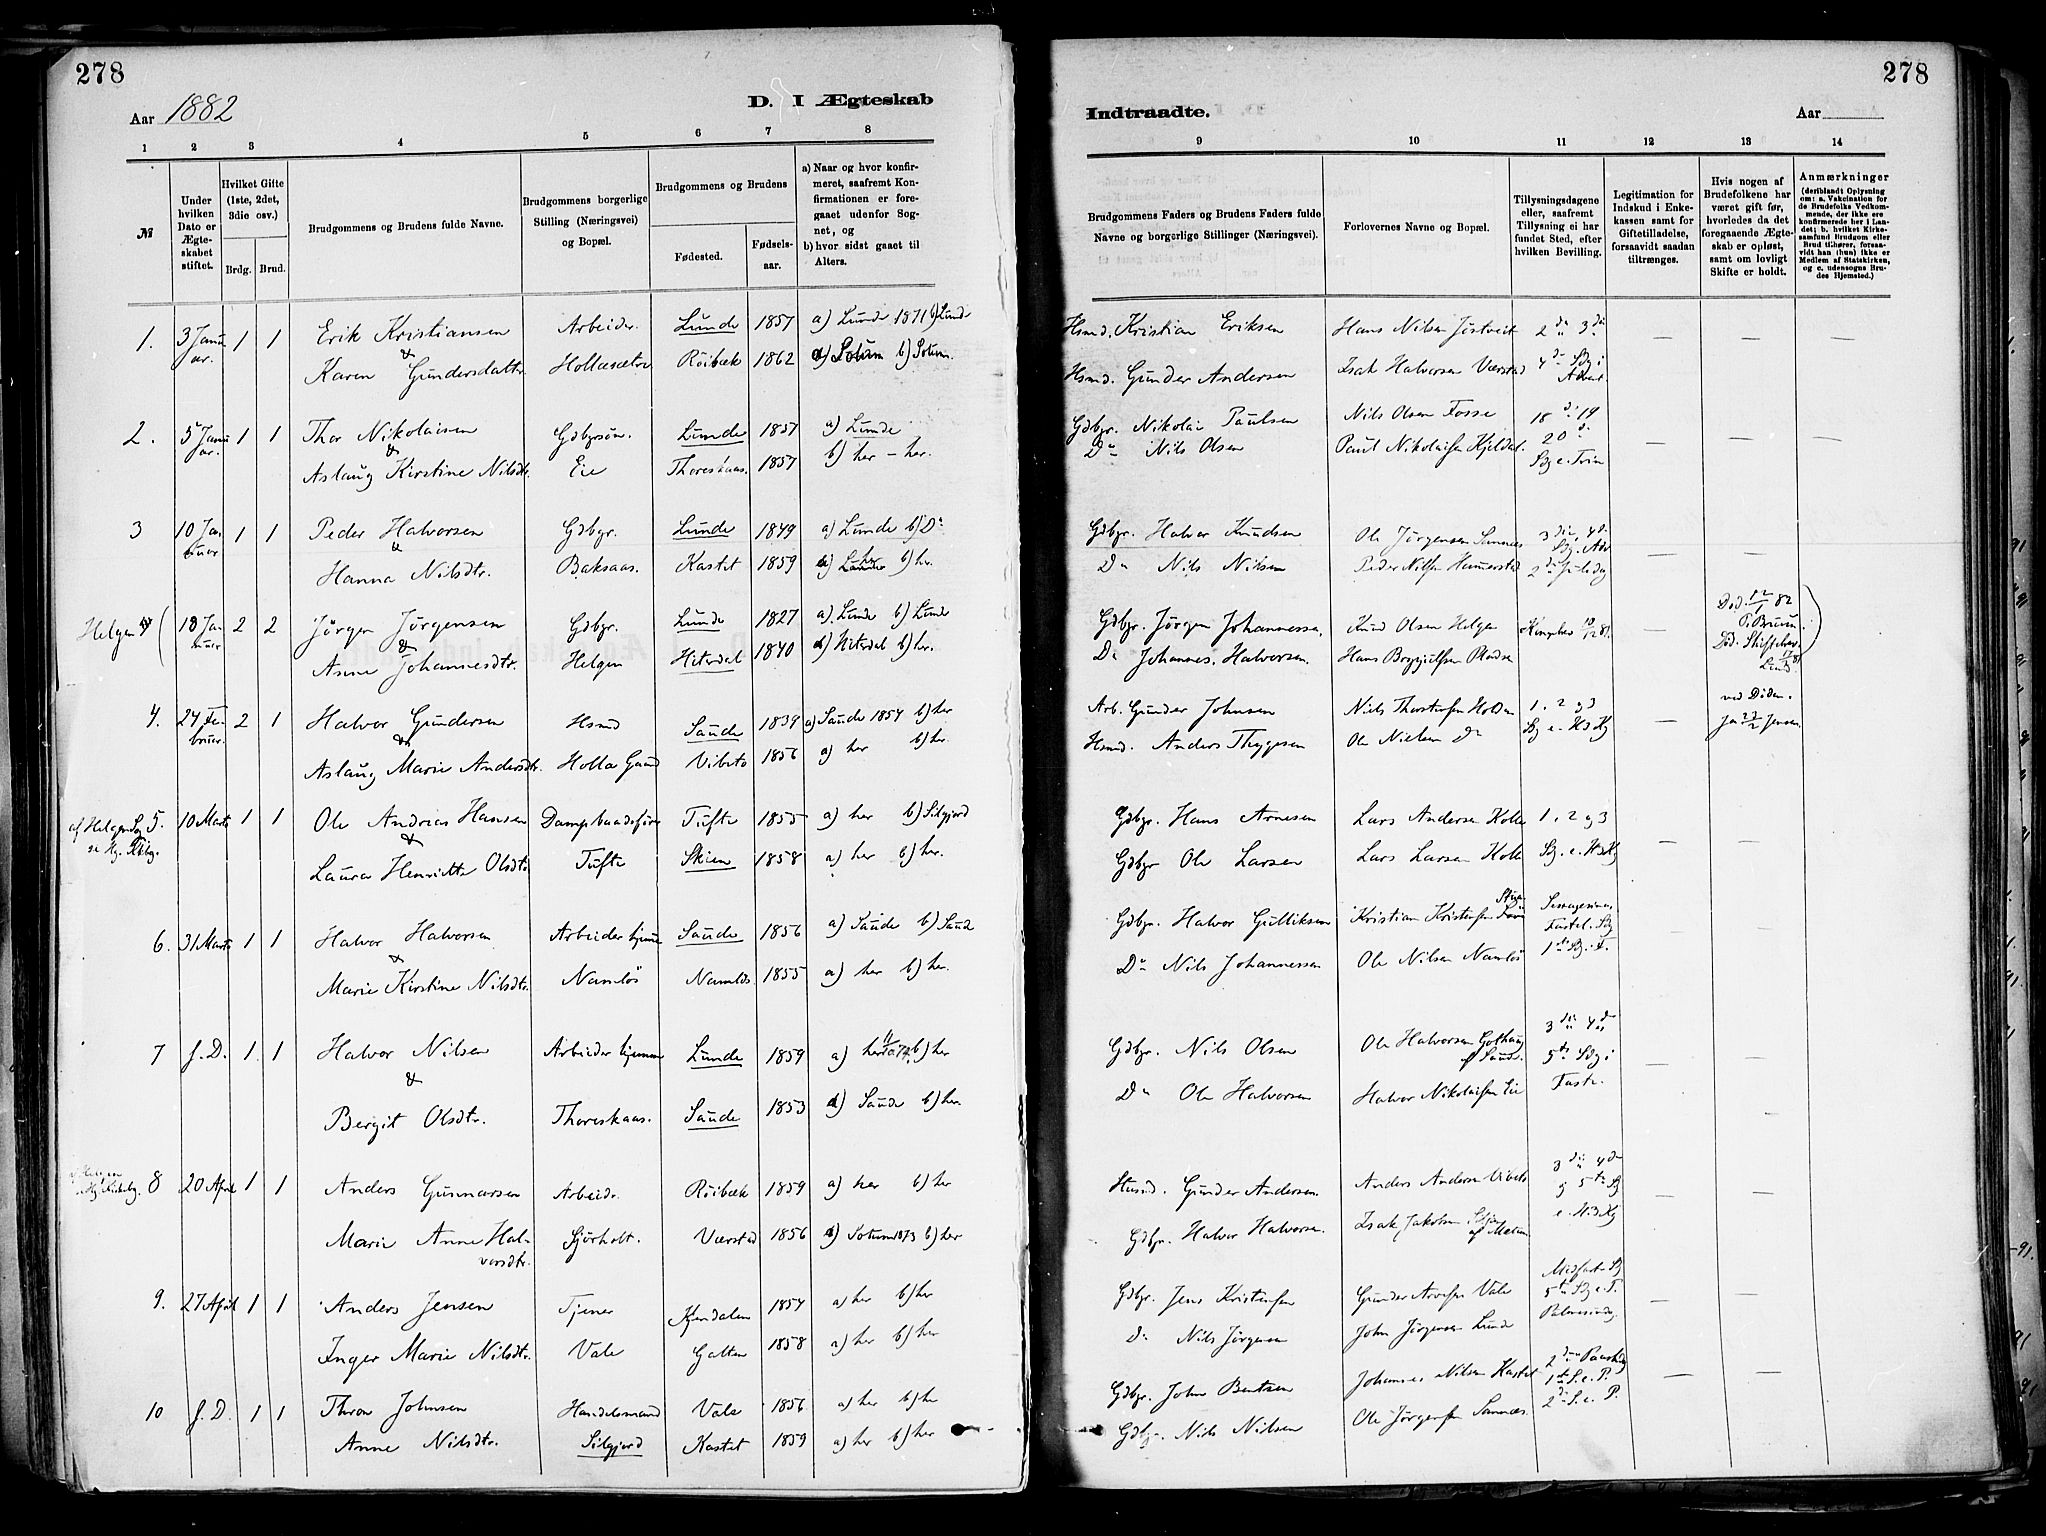 278
Aar 1882
D. I Ægteskab
1 2 3 4 5 6 7 8
№
Under hvilken Dato er Ægteskabet stiftet.
Hvilket Gifte (1ste, 2det, 3die osv.)
Brdg. Brud.
Brudgommens og Brudens fulde Navne.
Brudgommens borgerlige Stilling (Næringsvei) og Bopæl.
Brudgommens og Brudens
Fødested. Fødselsaar.
a) Naar og hvor konfirmeret, saafremt Konfirmationen er foregaaet udenfor Sognet, og
b) hvor sidst gaaet til Alters.
1. 3 Januar. 1 1 Erik Kristiansen Arbeider. Lunde 1857 a) Lunde 1871 b) Lunde
& Karen Gundersdattr. Hollasætre Røibæk 1862 a) Solum b) Solum.
2. 5 Januar. 1 1 Thor Nikolaisen Gdbrsøn. Lunde 1857 a) Lunde
& Aslaug Kirstine Nilsdtr. Eie Thoreskaas. 1857 b) her – her.
3 10 Januar 1 1 Peder Halvorsen Gdbgr. Lunde 1849 a) Lunde b) Do
& Hanna Nilsdtr. Baksaas. Kastet 1859 a) her b) her.
Helgen 18 Januar 2 2 Jørgen Jørgensen Gdbgr. Lunde 1827 a) Lunde b) Lunde
& Anne Johannesdtr. Helgen Hiterdal 1840 a) Hiterdal b) her.
4. 24 Februar. 2 1 Halvor Gundersen Hsmd Saude 1839 a) Saude 1854 b) her
& Aslaug Marie Andersdtr. Holla Gaard Vibeto 1856 a) her b) her.
af Helgen Sogn 5. 10 Marts 1 1 Ole Andreas Hansen Dampbaadsfører Tufte 1855 a) her b) Silgjord
& Laura Henriette Olsdtr Tufte Skien 1858 a) her b) her.
6. 31 Marts 1 1 Halvor Halvorsen Arbeider hjemme Saude 1856 a) Saude b) Saude
& Marie Kirstine Nilsdtr. Namløs Namløs 1855 a) her b) her.
7 s. D. 1 1 Halvor Nilsen Arbeider hjemme Lunde 1859 a) her b) her
& Bergit Olsdtr. Thoreskaas. Saude 1853 a) Saude b) her.
8 20 April 1 1 Anders Gunnarsen Arbeidr. Røibæk 1859 a) her b) her
Marie Anne Halvorsdtr. Gjørholt. Værstad 1856 a) Solum 1873 b) her
9. 27 April 1 1 Anders Jensen Tjener 1854 a) her b) her
Inger Marie Nilsdtr. Vale Galten 1858 a) her b) her
10 s. D. 1 1 Thron Johnsen Handelsmand Vale 1856 a) her b) her
Anne Nilsdtr. Silgjord Kastet 1859 a) her b) her
278
Indtraadte.
Aar
9 10 11 12 13 14
Brudgommens Faders og Brudens Faders fulde Navne og borgerlige Stillinger (Næringsvei).
Forlovernes Navne og Bopæl.
Tillysningsdagene eller, saafremt Tillysning ei har fundet Sted, efter hvilken Bevilling.
Legitimation for Indskud i Enkekassen samt for Giftetilladelse, forsaavidt saadan tiltrænges.
Hvis nogen af Brudefolkene har været gift før, hvorledes da det foregaaende Ægteskab er opløst, samt om lovligt Skifte er holdt.
Anmærkninger (deriblandt Oplysning om: a. Vakcination for de Brudefolks Vedkommende, der ikke ere konfirmerede her i Landet; b. hvilket Kirkesamfund Brudgom eller Brud tilhører, forsaavidt han (hun) ikke er Medlem af Statskirken, og c. udensogns Brudes Hjemsted.)
Hsmd. Kristian Eriksen Hans Nilsen Jøstveit 2den 3die
Hsmd. Gunder Andersen Isak Halvorsen Værstad 4de Sg i Advent
Gdbgr. Nikolai Paulsen Nils Olsen Fosse 18de 19
Do Nils Olsen Paul Nikolaisen Hjeldal 20de Sg e. Trin
Gdbgr. Halvor Knudsen Ole Jørgensen Sannæs 3die, 4de Sg. Adv
Do Nils Nilsen Peder Nilsen Hammerstad 2den Juledag
Gdbgr. Jørgen Johannessen. Knud Olsen Helgen Kongebrev
Do Johannes Halvorsen.
Arb. Gunder Johnsen 1. 2 og 3 ved Døden.
Hsmd. Anders Thygesen Ole Nielsen Do Sg e. H3Kg
Gdbgr. Hans Arnesen Lars Andersen Kolle 1. 2 og 3
Gdbgr Ole Larsen Lars Larsen Kolle Sg. e. H3Kg
Gdbgr. Halvor Gulliksen Kristian Kristensen Fastel. Sg
Do Nils Johannessen Ole Nilsen Namløs 1ste Sg. F.
Gdbgr. Nils Olsen Ole Halvorsen Gothaug af Saude. 3die 4de
Do Ole Halvorsen Halvor Nikolaisen Eie 5te Sdg i Faste.
Husmd. Gunder Andersen. Anders Andersen Vibeto 3die 4de
Gdbgr. Halvor Halvorsen. Isak Jakobsen og 5te Sg e. H3Kg
Gdbgr. Jens Kristensen Gunder Vale Midfaste Sg
Do Nils Jørgensen John Jørgensen Lunde Palmesøndag
Gdbgr. John Bentsen Johannes Nilsen Kastet 2den Paaskedag 1ste S. e. P.
Gdbgr. Nils Nilsen Ole Jørgensen Sannæs. 2den S. e. P.